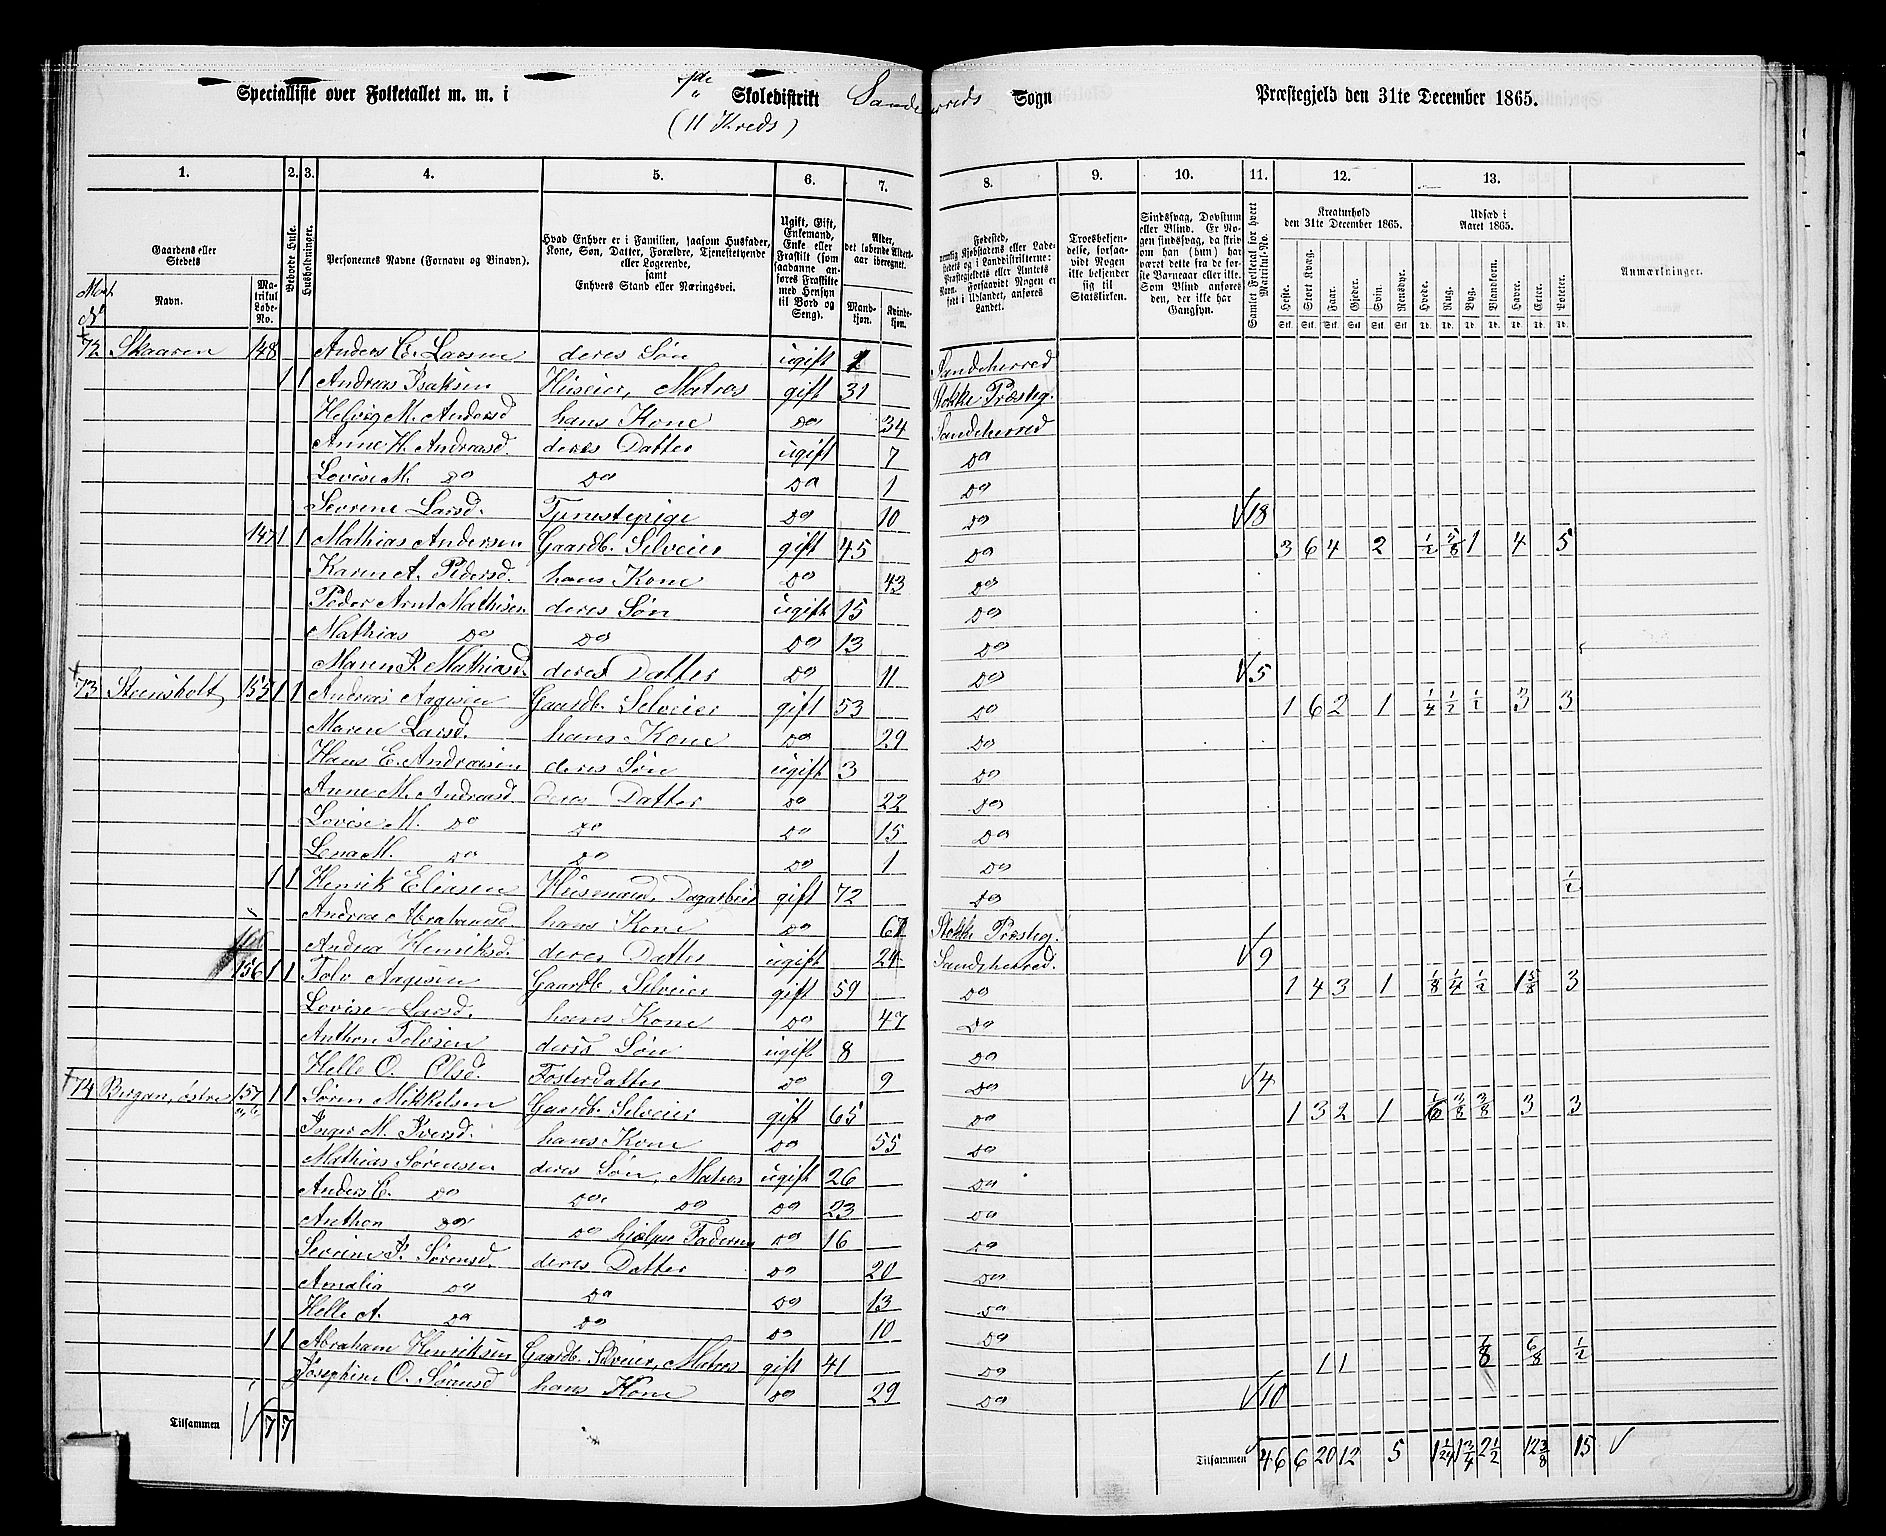 Specialliste over Folketallet m. m. i 7de Skoledistrikt Sandeherreds Sogn Præstegjeld den 31te December 1865.
(11 Kreds)
1. 2. 3. 4. 5. 6. 7. 8. 9. 10. 11. 12. 13.
Gaardens eller Stedets
Navn.
Matrikul Løbe-No.
Beboede Huse.
Husholdninger.
Personernes Navne (Fornavn og Binavn).
Hvad Enhver er i Familien, saasom Husfader, Kone, Søn, Datter, Forældre, Tjenestetyende eller Logerende, samt Enhvers Stand eller Næringsvei.
Ugift, Gift, Enkemand, Enke eller Fraskilt (som saadanne anføres Fraskilte med Hensyn til Bord og Seng).
Alder, det løbende Alders-aar iberegnet.
Mandkjøn. Kvindekjøn.
Fødested,
Troesbekjendelse, forsaavidt Nogen ikke bekjender sig til Statskirken.
Sindssvag, Døvstum eller Blind. Er Nogen sindssvag, da skrives om han (hun) har været dette fra de første Barneaar eller ikke. Som Blind anføres den, der ikke har Gangsyn.
Samlet Folketal for hvert Matrikul-No.
Kreaturhold den 31te December 1865.
Heste. Stort Kvæg. Faar. Gjeder. Svin. Rensdyr.
Udsæd i Aaret 1865.
Hvede. Rug. Byg. Blandkorn. Havre. Erter. Poteter.
Anmærkninger.
72 Skaaren 148 Anders C. Larsen deres Søn ugift 2 Sandeherred
1 1 Andreas Isaksen Huseier, Matros gift 31 Stokke Præsteg.
Helvig M. Andersd hans Kone do 34 Sandeherred
Anne H. Andreasd. deres Datter ugift 7 do
Lovise M. do do do 1 do
Severine Larsd. Tjenestepige do 10 do 18
147 1 1 Mathias Andersen Gaardb. Selveier gift 45 do 3 6 4 2 1/2 5/8 1 4 5
Karen A. Pedersd. hans Kone do 43 do
Peder Arnt Mathisen deres Søn ugift 15 do
Mathias do do do 13 do
Maren P. Mathiasd. deres Datter do 11 do 5
73 Steensholt 155 1 1 Andreas Aagesen Gaardb. Selveier gift 53 do 1 6 2 1 1/4 1/2 1/2 3 3
Maren Larsd. hans Kone do 29 do
Hans E. Andreasen deres Søn ugift 3 do
Anne M. Andreasd. deres Datter do 22 do
Lovise M. do do do 15 do
Lena M. do do do 1 do
1 1 Henrik Eliasen Huusmand, Dagarbeid gift 72 do 1/2
Andrea Abrahamsd. hans Kone do 67 Stokke Præsteg.
Andrea Henriksd. deres Datter ugift 24 Sandeherred. 9
156 1 1 Tolv Aagesen Gaardb. Selveier gift 59 do 1 4 3 1 1/8 1/4 1/2 1 5/8 3
Lovise Larsd. hans Kone do 47 do
Anthon Tolvsen deres Søn ugift 8 do
Helle O. Olsd. Fosterdatter do 9 do 4
74 Bergan, østre 157 1 1 Søren Mikkelsen Gaardb. Selveier gift 65 do 1 3 2 1 1/6 3/8 3/8 3 3
Inger M. Iversd. hans Kone do 55 do
Mathias Sørensen deres Søn, Matros ugift 26 do
Anders C. do do do do 23 do
Anthon do do hjælper Faderen do 16 do
Severine P. Sørensd. deres Datter do 20 do
Amalia do do do 13 do
Helle A. do do do 10 do
1 1 Abraham Henriksen Gaardb. Selveier, Matros gift 41 do 1 1 1/8 6/8 1/2
Josephine O. Sørensd hans Kone do 29 do 10
Tilsammen 7 7
Tilsammen 46 6 20 12 5 1 1/24 1 3/4 2 1/2 12 3/8 15